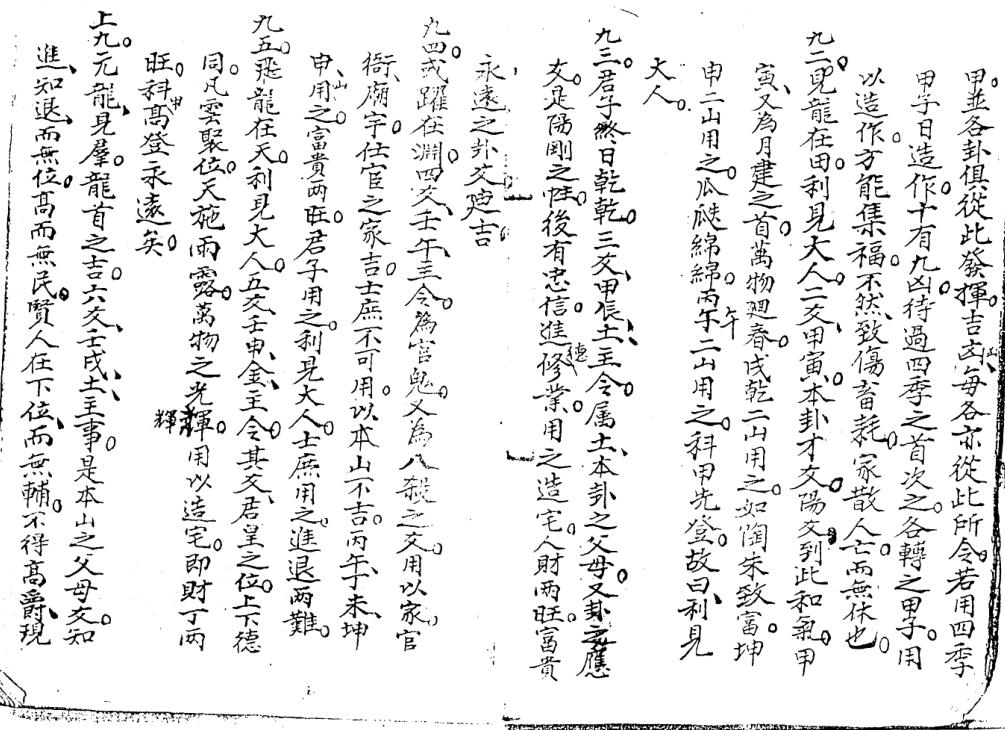 甲。並各卦俱從此發揮。吉凶每各亦從此所令。若用四季
甲子日造作。十有九凶。待過四季之首次之。各轉之甲子。用
以造作。方能集福。不然、致傷畜耗。家散人亡。而無休也。
九二。見龍在田。利見大人。二爻、甲寅。本卦才爻。陽爻到此和氣。甲
寅、又為月建之首。萬物廻春。戌乾二山用之。如陶朱致富。坤
申二山用之。瓜瓞綿綿。丙午二山用之。科甲先登。故曰、利見
大人。
九三。君子終日乾乾。三爻、甲辰、土、主令。属土、本卦之父母。又卦之應
爻。是陽剛之性。後有忠信。進德修業。用之造宅。人財兩旺。富貴
永遠之卦爻迪吉。
九四。或躍在淵。四爻、壬午、主令。為官鬼。又為八殺之爻。用以家官
衙、廟宇。仕宦之家吉。士庶不可用。以本山不吉。丙午、丁未、坤
申山用之。富貴兩旺。君子用之。利見大人。士庶用之。進退兩難。
九五。飛龍在天。利見大人。五爻、壬申、金、主令。其爻、居皇之位。上下德
同。凡雲聚位。天施雨露。萬物之光輝。用以造宅。即財丁兩
旺。科甲高登。永遠矣。
上九。元龍、見羣。龍首之吉。六爻、壬戌、土、主事。是本山之父母爻。知
進、知退、而無位。高而無民。賢人在下位、而無輔。不得高爵、現